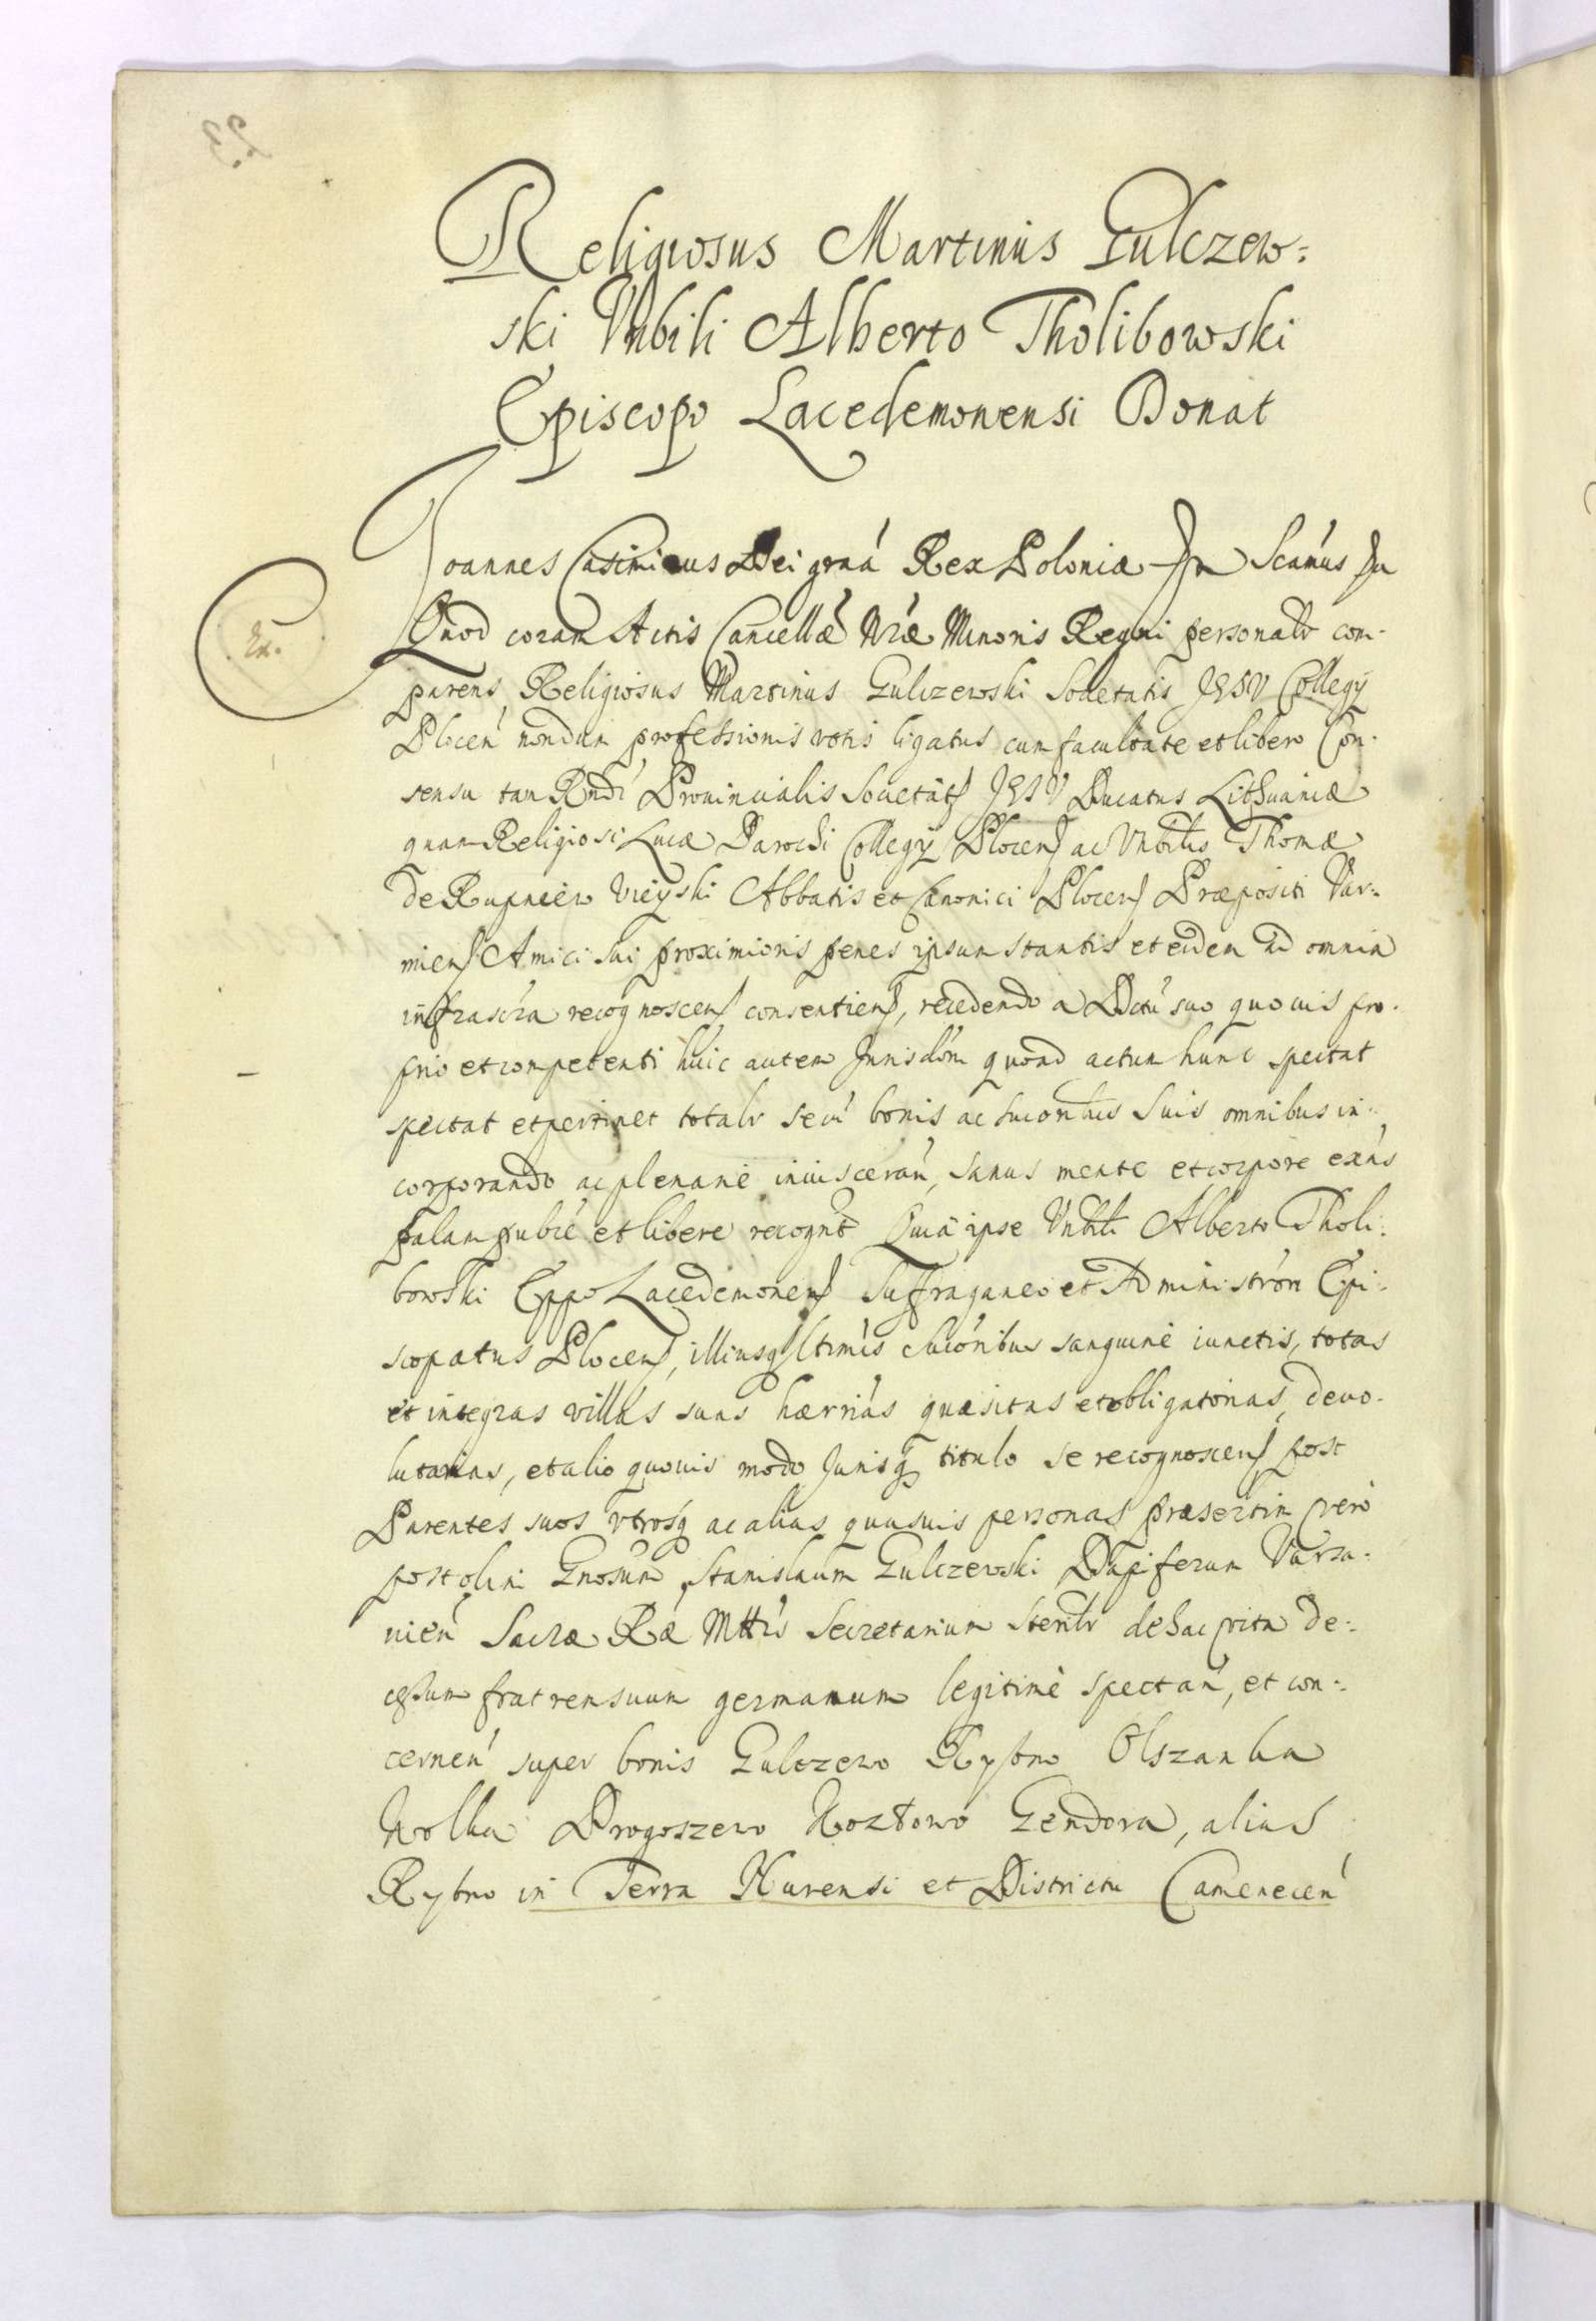 23
Religiosus Martinus Gulczew=
ski Vnbili Alberto Tholibowski
Episcopo Lacedemonensi Donat
Joannes Casimirus Dei gráa Rex Poloniæ Scámus
Ex.
Quod coram Actis Cancellæ Nræ Minoris Regni personalr com-
parens Religiosus Martinus Gulczewski Societatis JESV Collegÿ
Plocen nondum professionis votis ligatus cum facultate et libero Con-
sensu tam Rndi Prouincialis Societats JESV Ducatus Lithuaniæ
quam Religiosi Lucæ Parochi Collegÿ Plocens ac Vnbilis Thomæ
de Rupniew Vieyski Abbatis et Canonici Plocens Præpositi Var-
miens Amici sui proximioris penes ipsum stantis et eidem ad omnia
infrascra recognoscens consentiens, recedendo a Dctu suo quouis pro-
prio et competenti huic autem Jurisdom quoad actum hunc spectat
spectat et pertinet totalr se cu bonis ac sucoribus suis omnibus in-
corporando ac plenarie inuisceran, sanus mente et corpore exns
palam publce et libere recognt Quia ipse Vnbili Alberto Tholi-
bowski Eppo Lacedemonens Suffraganeo et Administrori Epi-
scopatus Plocens, illiusq ltimis sucoribus sanguine iunctis, totas
et integras villas suas hærrias quæsitas et obligatorias, deuo-
lutarias, et alio quouis modo Jurisq titulo se recognoscens post
Parentes suos vtrosq ac alias quasuis personas præsertim vero
post olim Gnosum Stanislaum Gulczewski Dapiferum Varsa-
uien Sacræ Ræ Mttis Secretarium sterilr de hac vita de-
cessum fratrem suum germanum legitime spectan, et con-
cernen super bonis Gulczewo Rybno Olszanka
Wolka Drogoszewo Kozłowo Gendora, alias
Rybno in Terra Nurensi et Districtu Camenecen